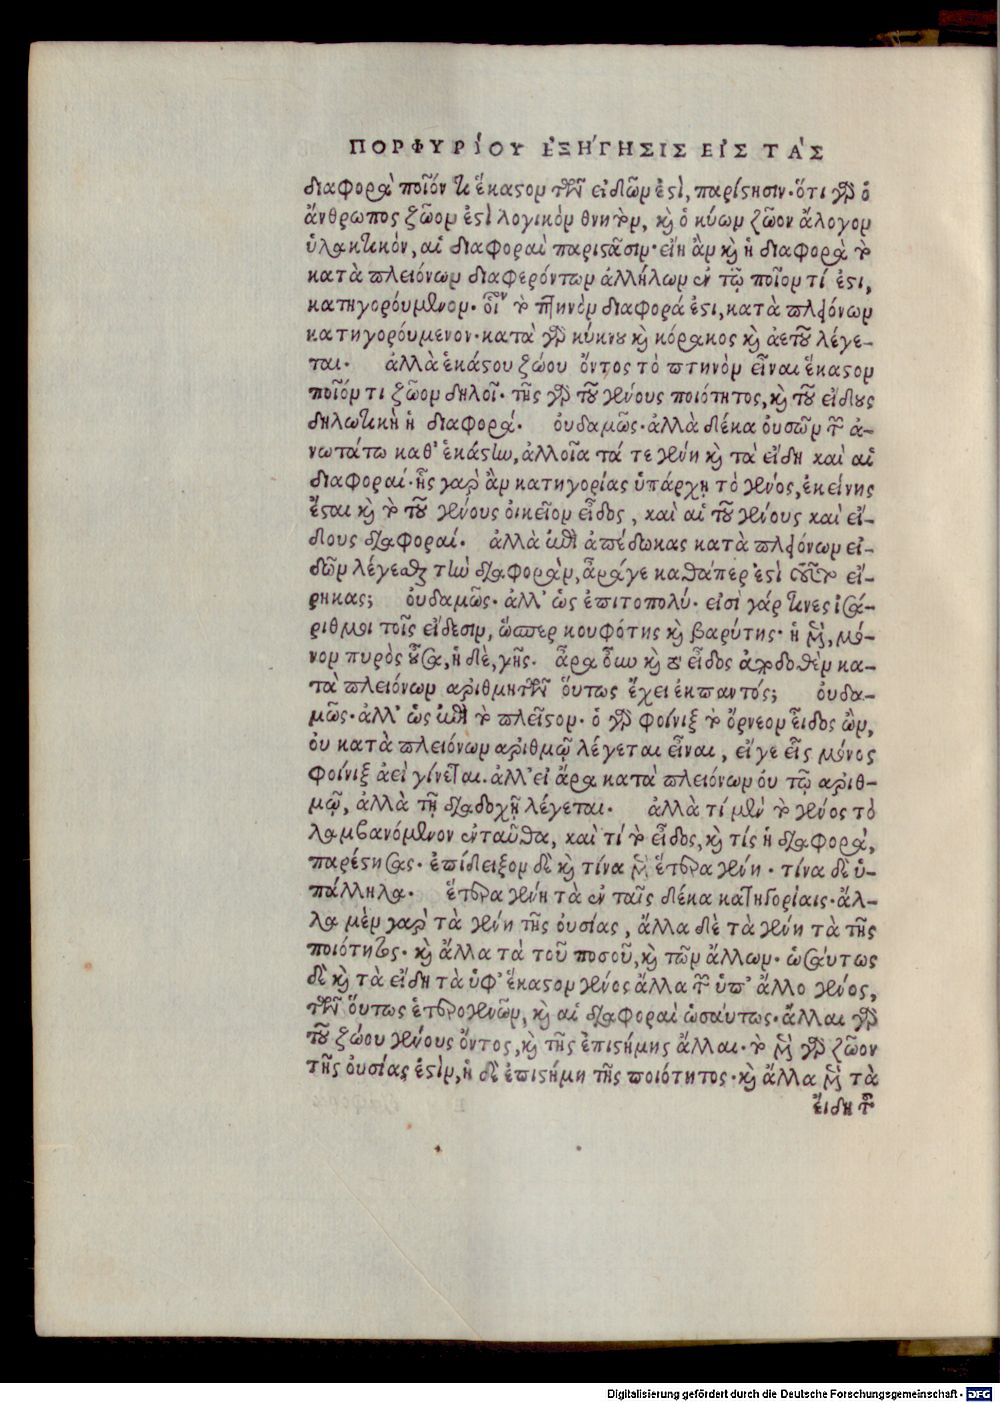 ΠΟΡΦΥΡΊΟΥ ἘΞΉΓΗΣΙΣ ΕΙ᾿Σ ΤᾺΣ
διαφορὰ ποῖόν τι ἕκαστον τῶν εἰδῶν ἐστὶ, παρίστησιν· ὅτι γὰρ ὁ
ἄνθρωπος ζῶον ἐστὶ λογικὸν θνητὸν, καὶ ὁ κύων ζῶον ἄλογον
ὑλακτικὸν, αἱ διαφοραὶ παριστᾶσιν· εἴη ἂν καὶ ἡ διαφορὰ τὸ
κατὰ πλειόνων διαφερόντων ἀλλήλων ἐν τῷ ποῖον τί ἐστι,
κατηγορούμενον· οἷον τὸ πτηνὸν διαφορά ἐστι, κατὰ πλειόνων
κατηγορούμενον· κατὰ γὰρ κύκνου καὶ κόρακος καὶ ἀετοῦ λέγε-
ται· ἀλλὰ ἑκάστου ζώου ὄντος τὸ πτηνὸν εἶναι ἕκαστον
ποῖόν τι ζῶον δηλοῖ· τῆς γὰρ τοῦ γένους ποιότητος, καὶ τοῦ εἴδους
δηλωτικὴ ἡ διαφορά· οὐδαμῶς· ἀλλὰ δέκα οὐσῶν τῶν ἀ-
νωτάτω καθ' ἑκάστην, ἀλλοῖα τά τε γένη καὶ τὰ εἴδη καὶ αἱ
διαφοραί· ἧς γὰρ ἂν κατηγορίας ὑπάρχῃ τὸ γένος, ἐκείνης
ἔσται καὶ τὸ τοῦ γένους οἰκεῖον εἶδος, καὶ αἱ τοῦ γένους καὶ εἴ-
δους διαφοραί· ἀλλὰ ἐπεὶ ἀπέδωκας κατὰ πλειόνων εἰ-
δῶν λέγεσθαι τὴν διαφορὰν, ἆράγε καθάπερ ἐστὶ τοῦτο εἴ-
ρηκας; οὐδαμῶς· ἀλλ' ὡς ἐπιτοπολύ· εἰσὶ γάρ τινες ἰσά-
ριθμοι τοῖς εἴδεσιν, ὥσπερ κουφότης καὶ βαρύτης· ἡ μὲν, μό-
νον πυρὸς οὖσα, ἡ δὲ, γῆς· ἆρα οὖν καὶ τὸ εἶδος ἀποδοθὲν κα-
τὰ πλειόνων ἀριθμητῶν οὕτως ἔχει ἐκπαντός; οὐδα-
μῶς· ἀλλ' ὡς ἐπὶ τὸ πλεῖστον· ὁ γὰρ φοίνιξ τὸ ὄρνεον εἶδος ὂν,
οὐ κατὰ πλειόνων ἀριθμῷ λέγεται εἶναι, εἴγε εἷς μόνος
φοίνιξ ἀεὶ γίνεται· ἀλλ' εἰ ἄρα κατὰ πλειόνων οὐ τῷ ἀριθ-
μῷ, ἀλλὰ τῇ διαδοχῇ λέγεται· ἀλλὰ τί μὲν τὸ γένος τὸ
λαμβανόμενον ἐνταῦθα, καὶ τί τὸ εἶδος, καὶ τίς ἡ διαφορά,
παρέστησας· ἐπίδειξον δὲ καὶ τίνα μὲν ἕτερα γένη· τίνα δὲ ὑ-
πάλληλα· ἕτερα γένη τὰ ἐν ταῖς δέκα κατηγορίαις· ἄλ-
λα μὲν γὰρ τὰ γένη τῆς οὐσίας, ἄλλα δὲ τὰ γένη τὰ τῆς
ποιότητος· καὶ ἄλλα τὰ τοῦ ποσοῦ, καὶ τῶν ἄλλων· ὡσαύτως
δὲ καὶ τὰ εἴδη τὰ ὑφ' ἕκαστον γένος ἄλλα τῶν ὑπ' ἄλλο γένος,
τῶν οὕτως ἑτερογενῶν, καὶ αἱ διαφοραὶ ὡσαύτως· ἄλλαι γὰρ
τοῦ ζώου γένους ὄντος, καὶ τῆς ἐπιστήμης ἄλλαι· τὸ μὲν γὰρ ζῶον
τῆς οὐσίας ἐστὶν, ἡ δὲ ἐπιστήμη τῆς ποιότητος· καὶ ἄλλα μὲν τὰ
εἴδη τῶν
Digitalisierung gefördert durch die Deutsche Forschungsgemeinschaft · DFG